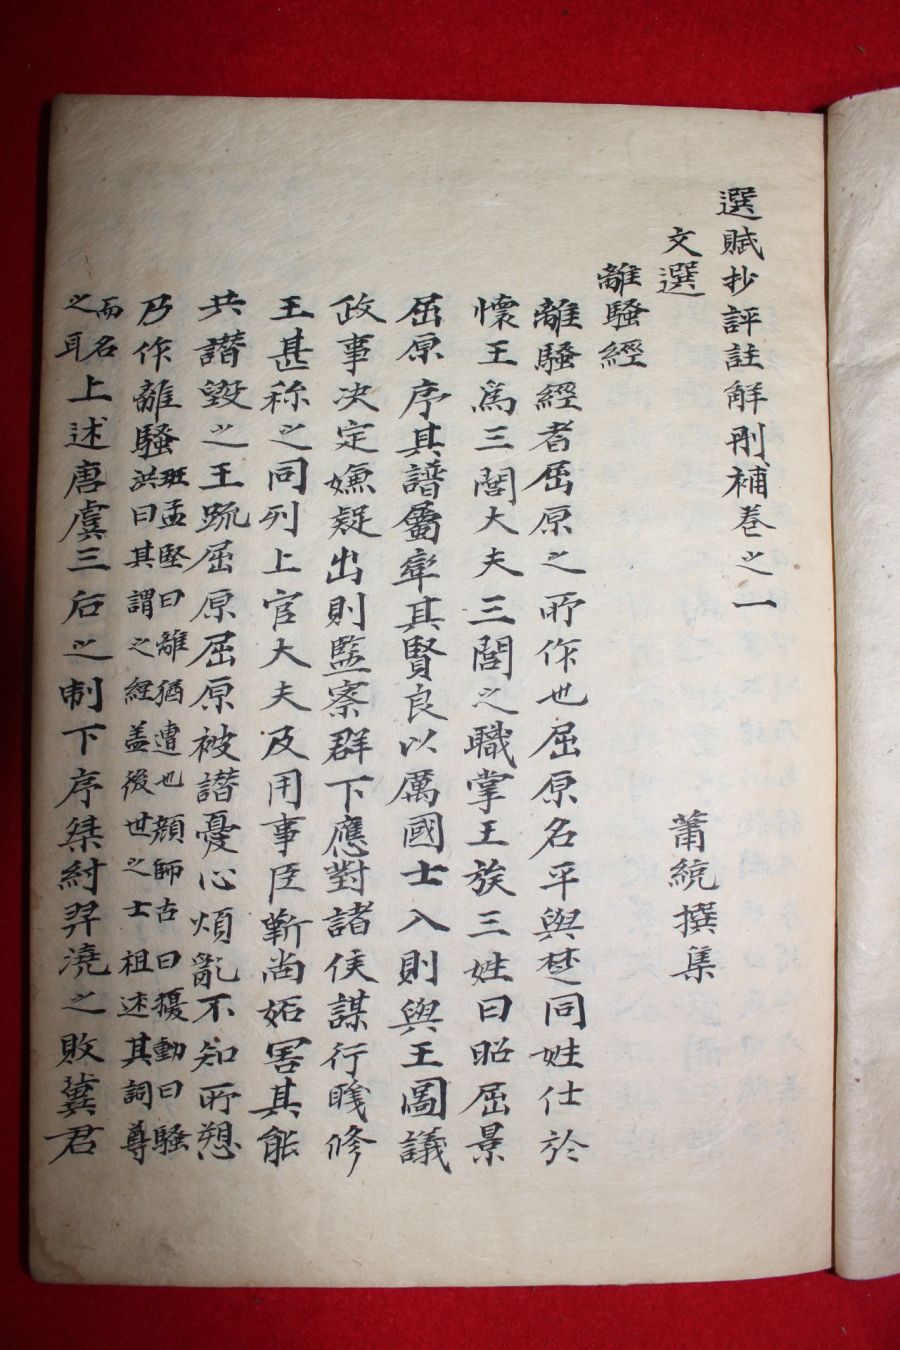 選賦抄評註解刪補卷之一
文選
蕭統撰集
離騷經
離騷經者屈原之所作也屈原名平與楚同姓仕於
懷王爲三閭大夫三閭之職掌王族三姓曰昭屈景
屈原序其譜屬率其賢良以厲國士入則與王圖議
政事决定嫌疑出則監察群下應對諸侯謀行職修
王甚称之同列上官大夫及用事臣靳尚妬害其能
共譖毀之王疏屈原屈原被譖憂心煩亂不知所愬
乃作離騷
班孟堅曰離猶遭也顔師古曰擾動曰騷
洪曰其謂之經盖後世之士祖述其詞尊
而名
之耳
上述唐虞三后之制下序桀紂羿澆之敗冀君